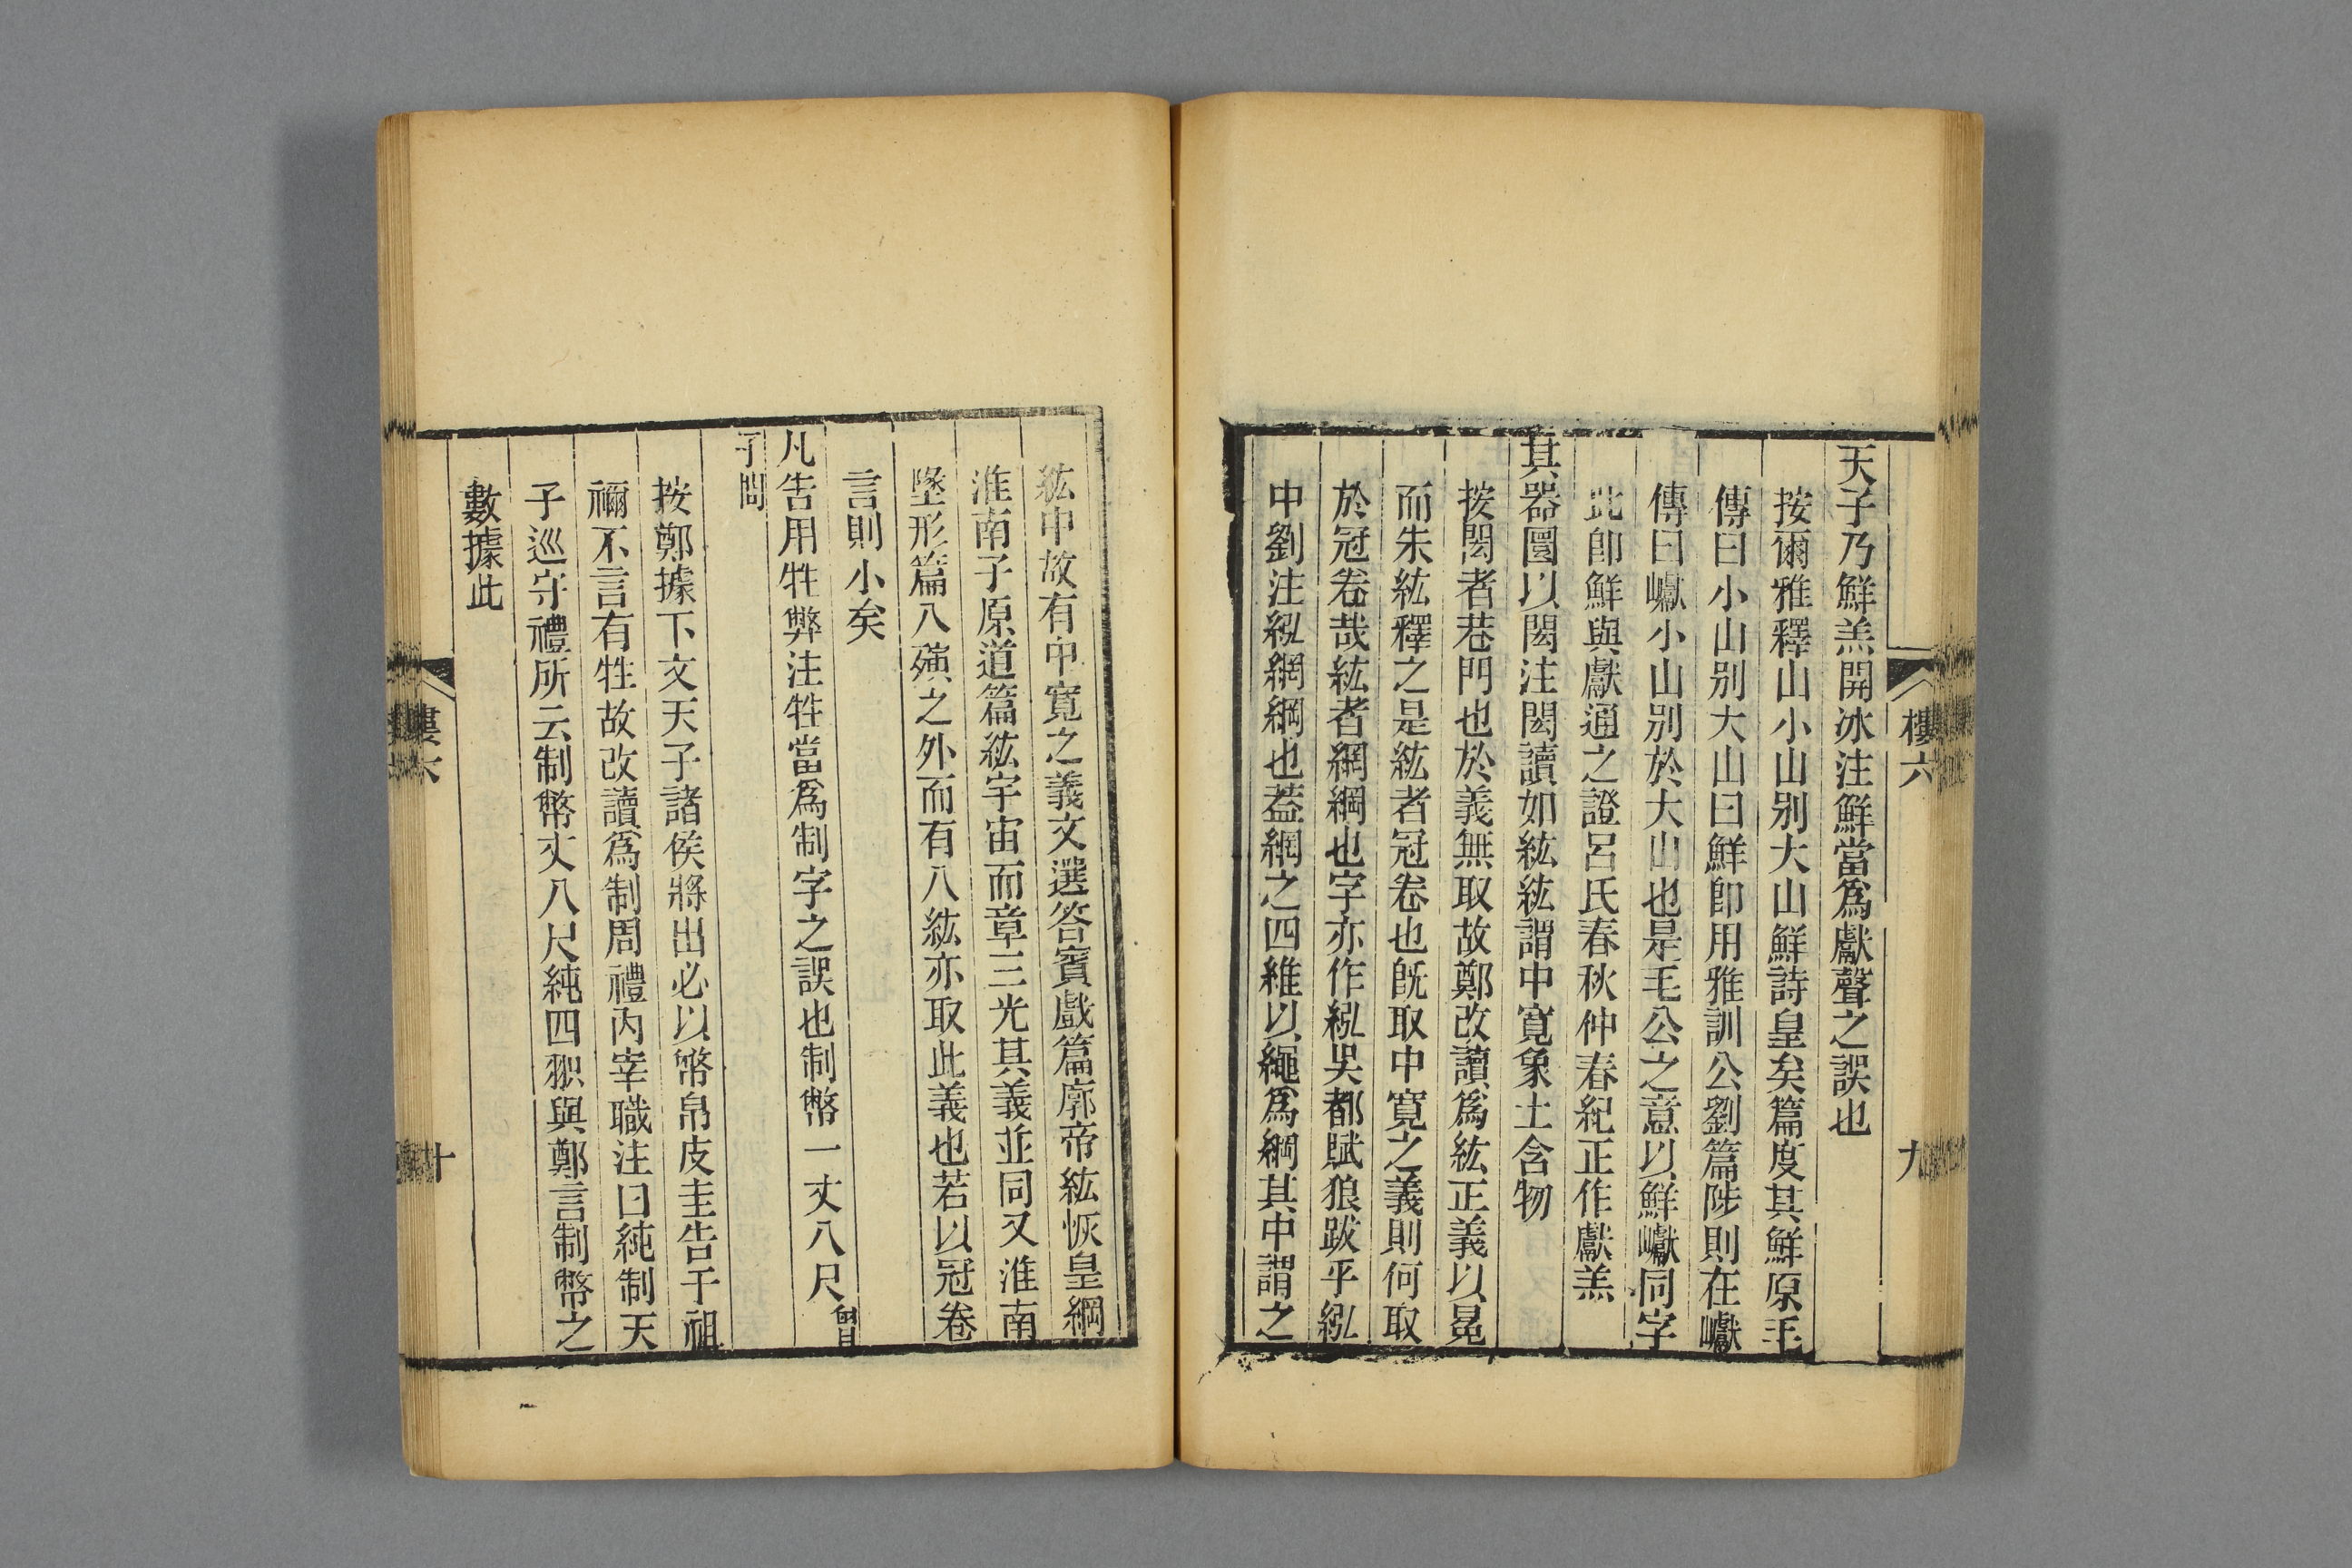 天子乃鮮羔開冰注鮮當爲獻聲之誤也
按爾雅釋山小山别大山鮮詩皇矣篇度其鮮原毛
傳曰小山别大山曰鮮卽用雅訓公劉篇陟則在巘
傳曰巘小山别於大山也是毛公之意以鮮巘同字
此卽鮮與獻通之證呂氏春秋仲春紀正作獻羔
其器圜以閎注閎讀如紘紘謂中寬象土含物
按閎者巷門也於義無取故鄭改讀爲紘正義以冕
而朱紘釋之是紘者冠卷也旣取中寬之義則何取
於冠卷哉紘者網綱也字亦作紭吳都賦狼跋乎紭
中劉注紭網綱也葢網之四維以繩爲綱其中謂之
樓六
九
紘中故有中寬之義文選答賓戲篇廓帝紘恢皇綱
淮南子原道篇紘宇宙而章三光其義並同又淮南
墬形篇八殥之外而有八紘亦取此義也若以冠卷
言則小矣
凡告用牲弊注牲當爲制字之誤也制幣一丈八尺曾
子問
按鄭據下文天子諸侯將出必以幣帛皮圭告于祖
禰不言有牲故改讀爲制周禮内宰職注曰純制天
子巡守禮所云制幣丈八尺純四㕞與鄭言制幣之
數據此
樓六
十